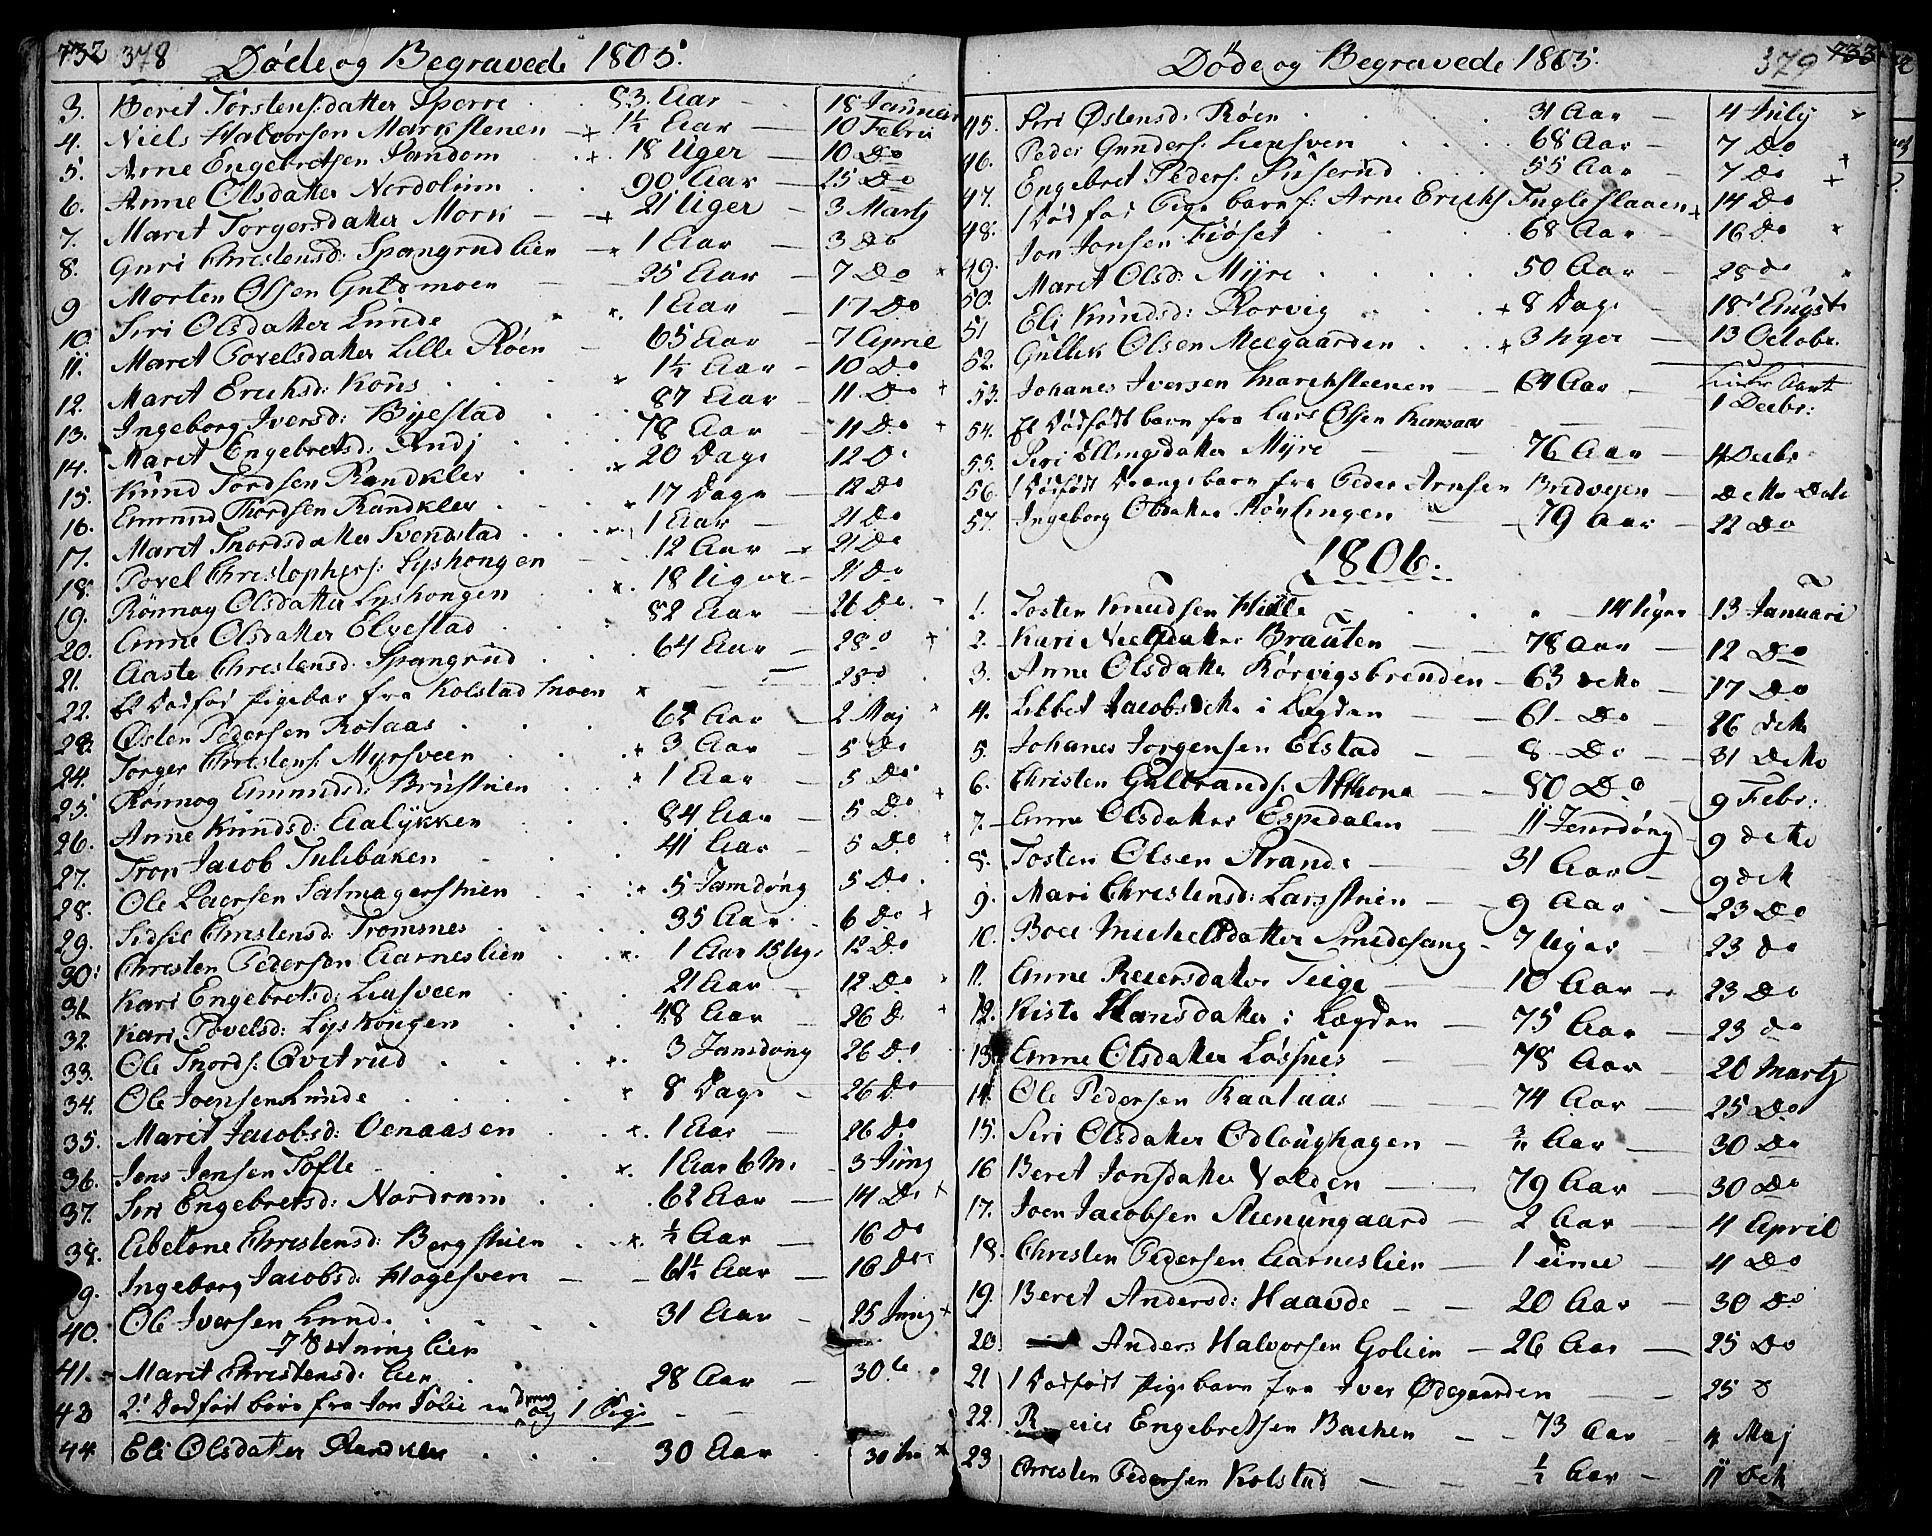 732 378 Døde og Begravede 1805.
3. Beret Torstensdatter Sperre 83. Aar 18 Januari
4. Niels Halvorsen Markstenen + 1½ Aar 10 Febru
5. Arne Engebretsen Sandom + 18 Uger 10 Do
6. Anne Olsdatter Nordolinn 90 Aar 25 Do
7. Marit Torgersdatter Mork + 21 Uger 3 Martj
8. Guri Christensd: Spangrudlien 1 Aar 3 Do
9 Morten Olsen Guldmoen 25 Aar 7 Do
10. Siri Olsdatter Lunde 1 Aar 17 Do
11. Marit Povelsdatter Lille Røen 65 Aar 7 April
12. Marit Eriksd: Kons 1½ Aar 10 Do
13. Ingeborg Iversd: Byestad 87 Aar 11 Do +
14. Marit Engebretsd: 78 Aar 11 Do +
15. Knud Tordsen Randklev 20 Dage 12 D.
16. Emund Thordsen Randklev 17 Dage 12 Do
17. Marit Thordsdatter Svendstad 1 Aar 21 Do
18. Povel Christophers: Lyshongen 12 Aar 21 Do
19. Rønnog Olsdatter Lyshongen 18 Uger 21 Do
20. Anne Olsdatter Elvestad 82 Aar 26 Do
21. Aaste Christensd: Spangrud 64 Aar 28 D +
22. Et Dødfød Pigebar fra Kolstad moen 28 D
23. Østen Pedersen Rolaas 62 Aar 2 Maj
24. Torger Christens: Myrsveen 3 Aar 5 Do
25. Rønnog Emundsd: Brustuen 1 Aar 5 Do
26. Anne Knudsd: Aalykken 84 Aar 5 Do +
27. Tron Jacob Tulibaken 41 Aar 5 Do +
28. Ole Salmagerstuen 5 Jamdøng 5 Do
29. Sidsil Christensd: Tromsnes 35 Aar 6 Do +
30. Christen Pedersen Aarneslien 1 Aar 15 Ug. 12 Do
31. Kari Engebretsd: Liusveen 21 Aar 12 Do
32. Kari Povelsd: Lyshongen 48 Aar 26 D.
33. Ole Thords: Qvitrud 3 Jamdøng 26 Do
34. Ole Joensen Lunde 8 Dage 26 Do
35. Marit Jacobsd: Oenaasen 1 Aar 26 Do
36. Jens Jensen Tofte 1 Aar 6 M. 3 Junij
37. Siri Engebretsd: Nordrum 62 Aar 14 Do +
38. Abelone Christensd: Bergstuen ½ Aar 16 Do
9. Ingeborg Jacobsd: Hagesven 61½ Aar 16 Do
40. Ole Iversen Lunde 31 Aar 25 Junij +
lien
41. Marit Christensd: Lien 28 Aar 30
43 2: Dødfød børn fra Jon Tolie en Dreng og 1 Pige
44 Eli Olsdatter Randklev 30 Aar 30 +
Døde og Begravede 1805. 379 733
45. Siri Østensd: Røen 31 Aar 4 July
46. Peder Gunders: Liensven 68 Aar 7 Do
47. Engebret Peders: 55 Aar 7 Do +
48. 1 Død fød Pige barn f: Arne Eriks Fugleslaaen 14 Do
49. Jon Jonsen Fiøset 68 Aar 16 Do
50. Marit Olsd: Myre 50 Aar 28 do
51 Eli Knudsd: Rorvig + 8 Dage 18 Augst
52. Gullik Olsen Melgaarden + 3 Uger 13 Octobr.
53. Johanes Iversen Markstenen 64 Aar
54. Et Dødfødt barn fra Lars Olsen 1 Decbr:
55. Siri Ellingsdatter Myre 76 Aar 11 Decbr
56. 1 Dødfødt Drengebarn fra Peder Arnsen Bredvejen Detto Dato
57. Ingeborg Olsdatter Rønlingen 79 Aar 22 Do
1806.
1. Tosten Knudsen Hille 14 Uger 13 Januari
2. Kari Nielsdatter Brauten 78 Aar 12 Do
3. Anne Olsdatter Rørvigsbrenden 63 detto 17 Do
4. Libbet Jacobsdatter i Legden 61 Do 26 detto
5. Johanes Jorgensen Elstad 8 Do 31 Detto
6. Christen Gulbrands: 80 Do 9 Febr:
7. Anne Olsdatter Espedalen 11 Jemdøng 9 detto
8. Tosten Olsen Strande 31 Aar 9 detto
9. Mari Christensd: Larsstuen 9 Aar 23 Do
10. Boel Michelsdatter Smedesang 7 Uger 23 do
11. Anne Reiersdatter Teige 10 Aar 23 Do
12. Kisti Hansdatter i Legden 75 Aar 23 do
13. Anne Olsdatter Løssnes 78 Aar 20 Martj
14. Ole Pedersen Raalaas 74 Aar 25 Do
15. Siri Olsdatter Odloughagen ¾ Aar 30 Do
16 Beret Jonsdatter Volden 79 Aar 30 Do
17. Joen Jacobsen Stenungaard 2 Aar 4 April
18. Christen Pedersen Aarneslien 1 time 4 Do
19. Beret Andersd: Haavde 20 Aar 30 Do
20. Anders Halvorsen Golien 26 Aar 25 Do
21 1 Dødfødt Pigebarn fra Iver Ødegaarden 25 D
22. Reier Engebretsen Bachen 73 Aar 4 Maj
23 Christen Pedersen Kolstad ½ Aar 11 Detto